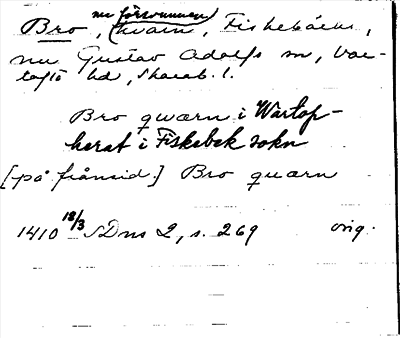 nu försvunnen
Bro, (kvarn, Fiskebäcks,
nu Gustav Adolfs sn, Var-
tofta hd, Skarab. l.
Bro qwærn i Wartop-
herat i Fiskebek sokn
[på frånsid.] Bro quærn
1410 18/3 SDns 2, s. 269 orig.